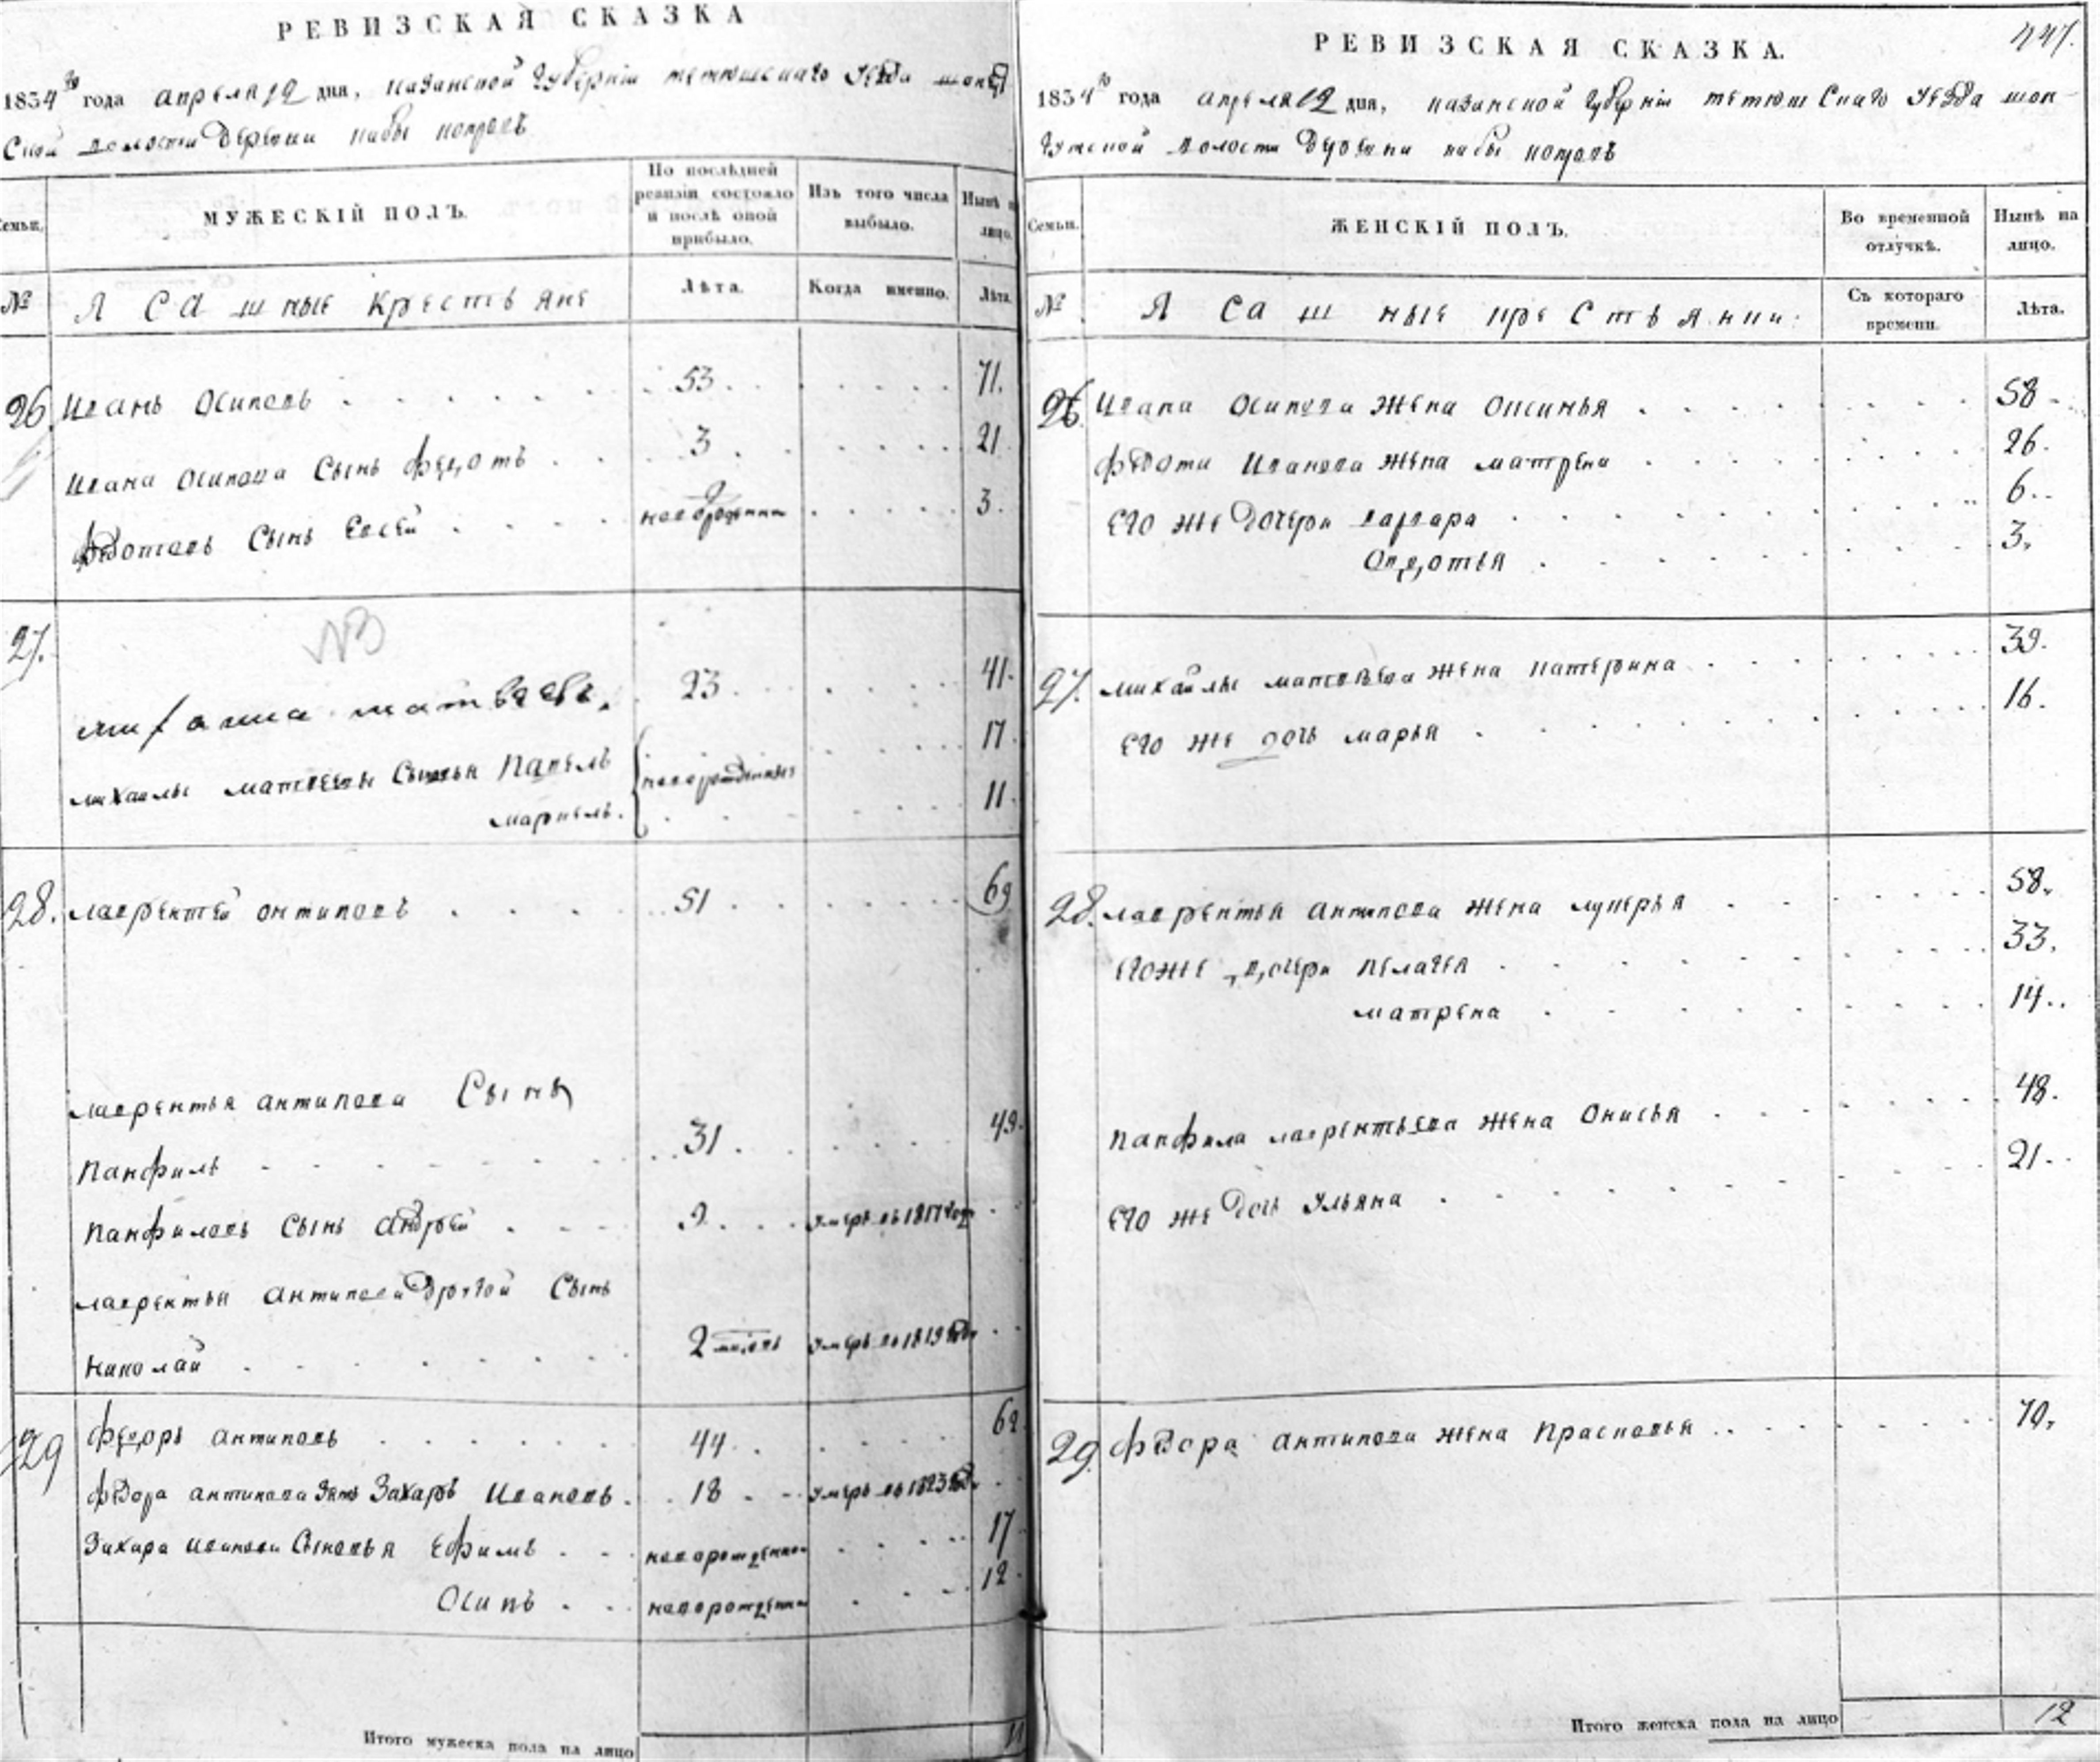 РЕВИЗСКАЯ СКАЗКА
1834го года апреля 12 дня, казанской губернiи тетюшскаго уезда
ской волости деревни кабы копревъ
Семьи.
МУЖЕСКIЙ ПОЛЪ.
По послѣдней ревизiи состояло и послѣ оной прибыло.
Изъ того числа выбыло.
Нынѣ на лицо.
№
Ясашные крестьяне
Лѣта.
Когда именно.
Лѣта.
26. Иванъ Осиповъ 53. 71.
Ивана Осипова Сынъ федотъ 3. 21
федотовъ Сынъ Евсей новорожденны 3.
27. NB
михаила матвеевъ. 23. 41.
михаилы матвеевы Сыновья Павелъ новорожденные 17.
маркелъ. 11.
28. лаврентей онтиповъ 51. 69
лаврентья антипова Сынъ
панфилъ 31. 49.
панфиловъ Сынъ андрей 2. умеръ въ 1817 году
лаврентья антипова другой Сынъ
николай 2 месяцъ умеръ въ 1819 году
29 федоръ антиповъ 44. 62.
федора антипова зять Захаръ Ивановъ. 18. умеръ въ 1823 году
Захара иванова Сыновья Ефимъ новорожденно 17
Осипъ новорожденны 12.
Итого мужеска пола на лицо 11
РЕВИЗСКАЯ СКАЗКА.
447.
1834го года апреля 12 дня, казанской губернiи тетюшскаго уезда
волости деревни кабы копревъ
Семьи.
ЖЕНСКIЙ ПОЛЪ.
Во временной отлучкѣ.
Нынѣ на лицо.
№
Ясашные крестьянки.
Съ котораго времени.
Лѣта.
26. Ивана Осипова жена Оксинья 58.
федота Иванова жена матрена 26.
Его же дочери варвара 6.
Овдотья 3.
27. михайлы матвеева жена катерина 39.
Его же дочь марья 16.
28. лаврентья антипова жена лукерья 58.
Егоже дочери пелагея 33.
матрена 14.
панфила лаврентьева жена Онисья 48.
Его же дочь ульяна 21.
29. федора антипова жена прасковья 70.
Итого женска пола на лицо 12